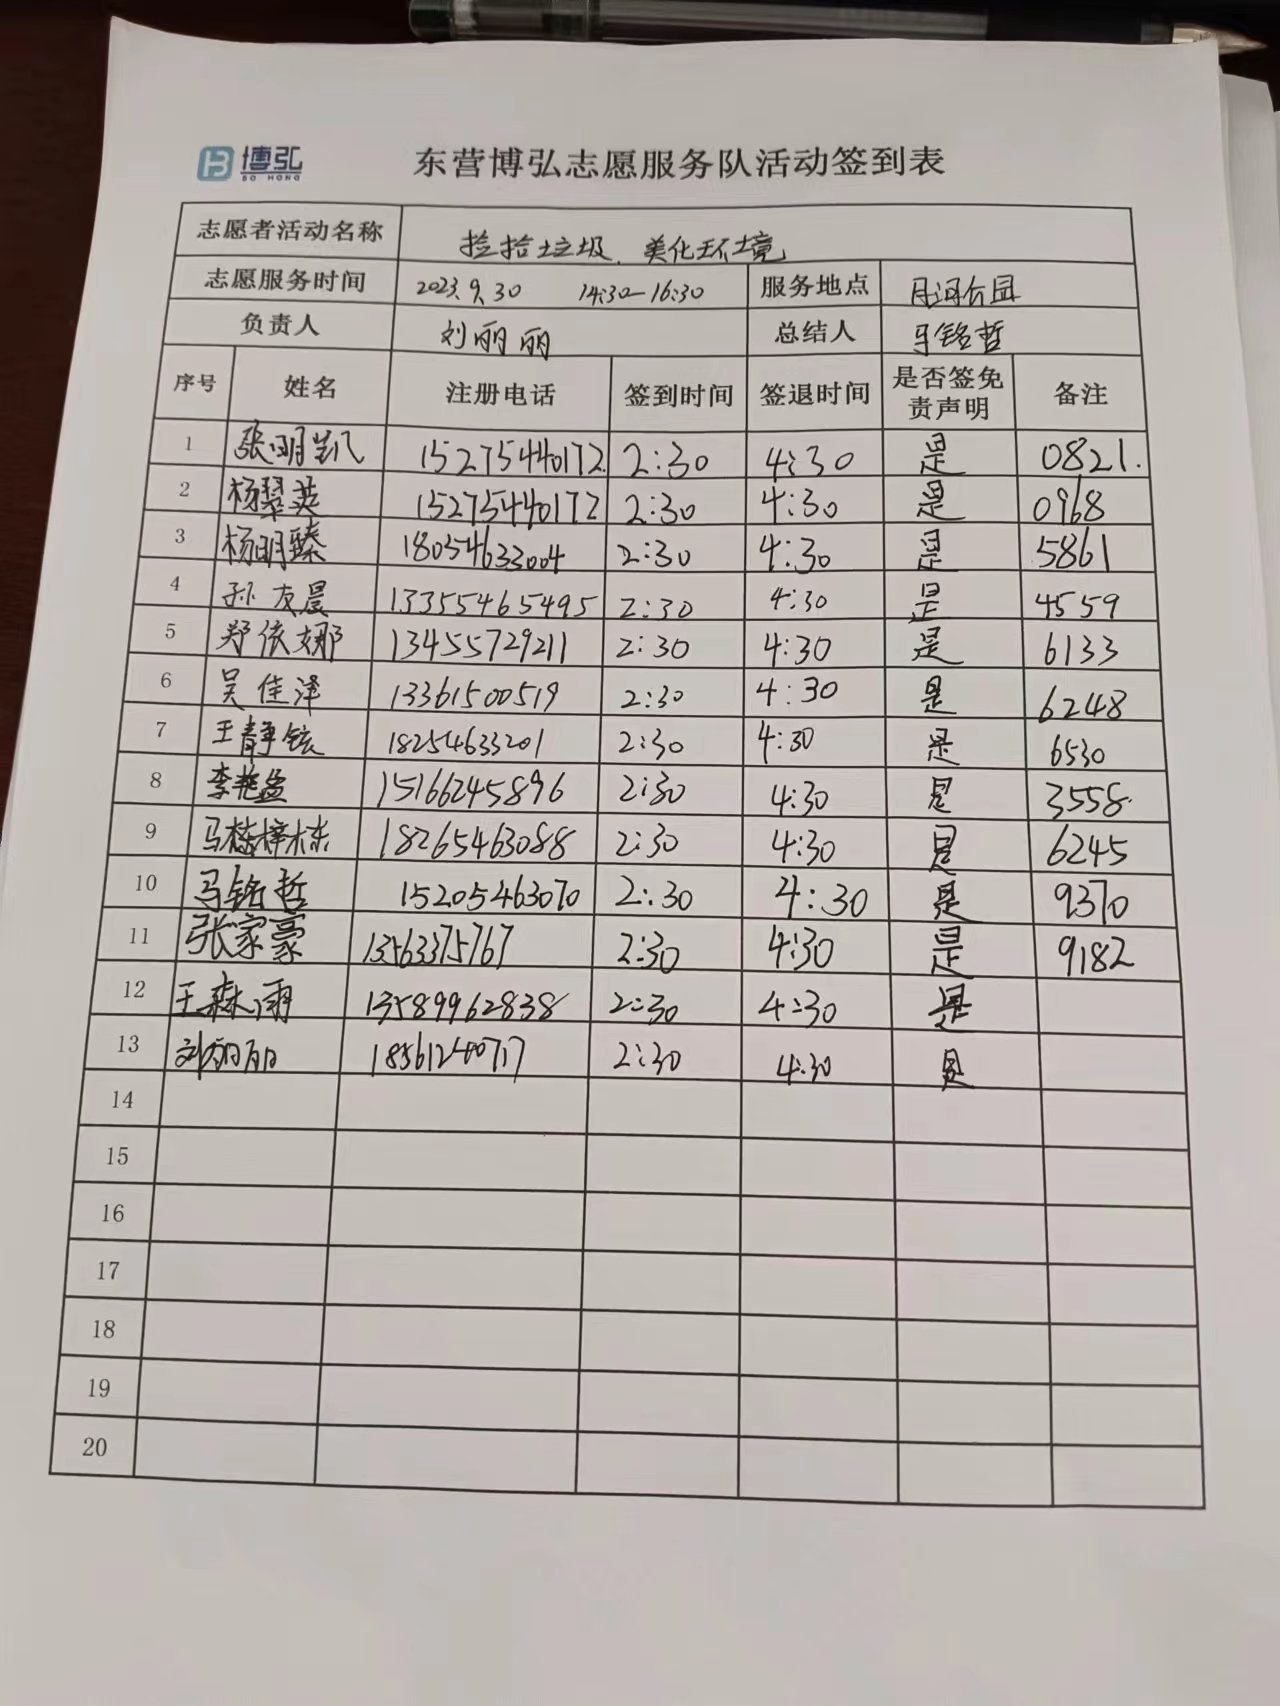 博弘
BO HONG
东营博弘志愿服务队活动签到表
志愿者活动名称 捡拾垃圾、美化环境
志愿服务时间 2023.9.30 14:30-16:30 服务地点 月河公园
负责人 刘丽丽 总结人 马铭哲
序号 姓名 注册电话 签到时间 签退时间 是否签免责声明 备注
1 张明凯 15275440172 2:30 4:30 是 0821.
2 杨翠英 15275440172 2:30 4:30 是 0968
3 杨明臻 18054633004 2:30 4:30 是 5861
4 孙友晨 13355465495 2:30 4:30 是 4559
5 郑依娜 13455729211 2:30 4:30 是 6133
6 吴佳泽 13361500519 2:30 4:30 是 6248
7 王静铉 18254633201 2:30 4:30 是 6530
8 李艳孟 15166245896 2:30 4:30 是 3558
9 马梓栋 18265463088 2:30 4:30 是 6245
10 马铭哲 15205463070 2:30 4:30 是 9370
11 张家豪 13563375767 2:30 4:30 是 9182
12 王森雨 13589962838 2:30 4:30 是
13 刘丽丽 2:30 4:30 是
14
15
16
17
18
19
20